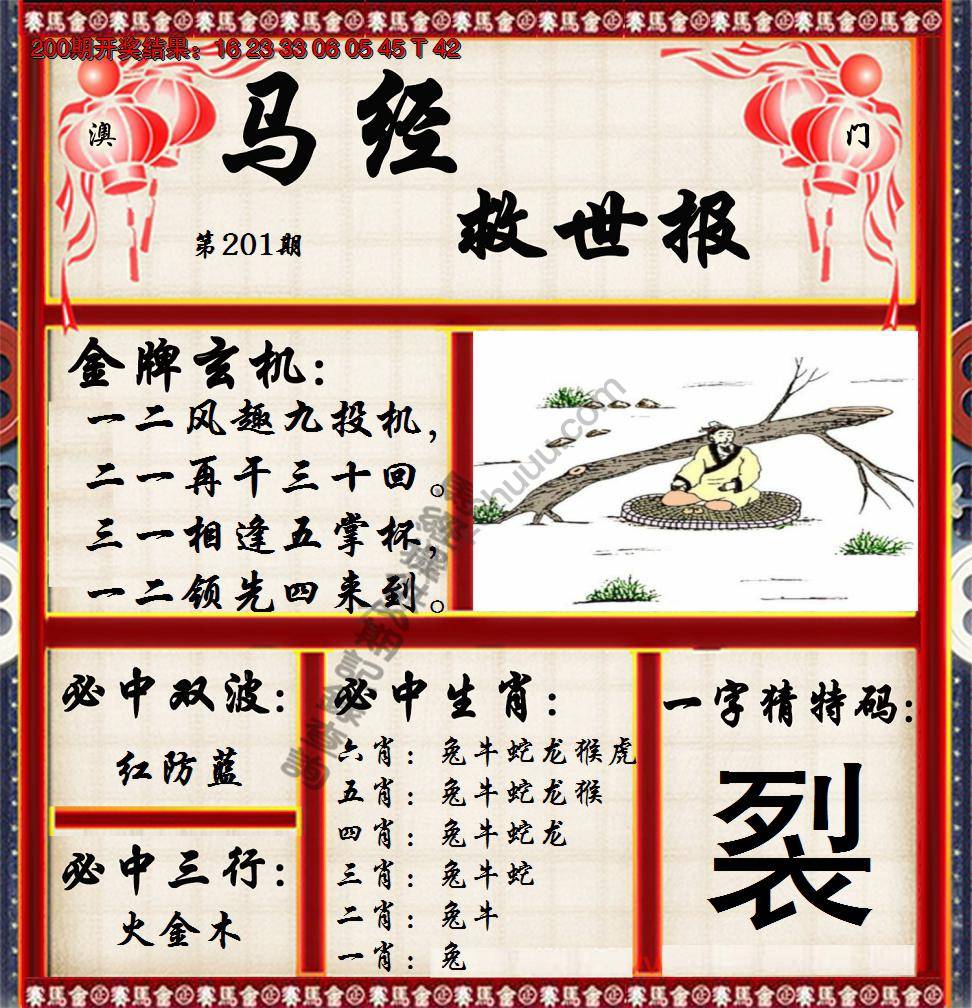 賽馬會 賽馬會 賽馬會 賽馬會 賽馬會 賽馬會 賽馬會 賽馬會 賽馬會
200期开奖结果：16 23 33 06 05 45 T 42
澳
门
马经
救世报
第201期
金牌玄机：
一二风趣九投机，
二一再干三十回。
三一相逢五掌杯，
一二领先四来到。
必中双波：
红防蓝
必中三行：
火金木
必中生肖：
六肖：兔牛蛇龙猴虎
五肖：兔牛蛇龙猴
四肖：兔牛蛇龙
三肖：兔牛蛇
二肖：兔牛
一肖：兔
一字猜特码：
裂